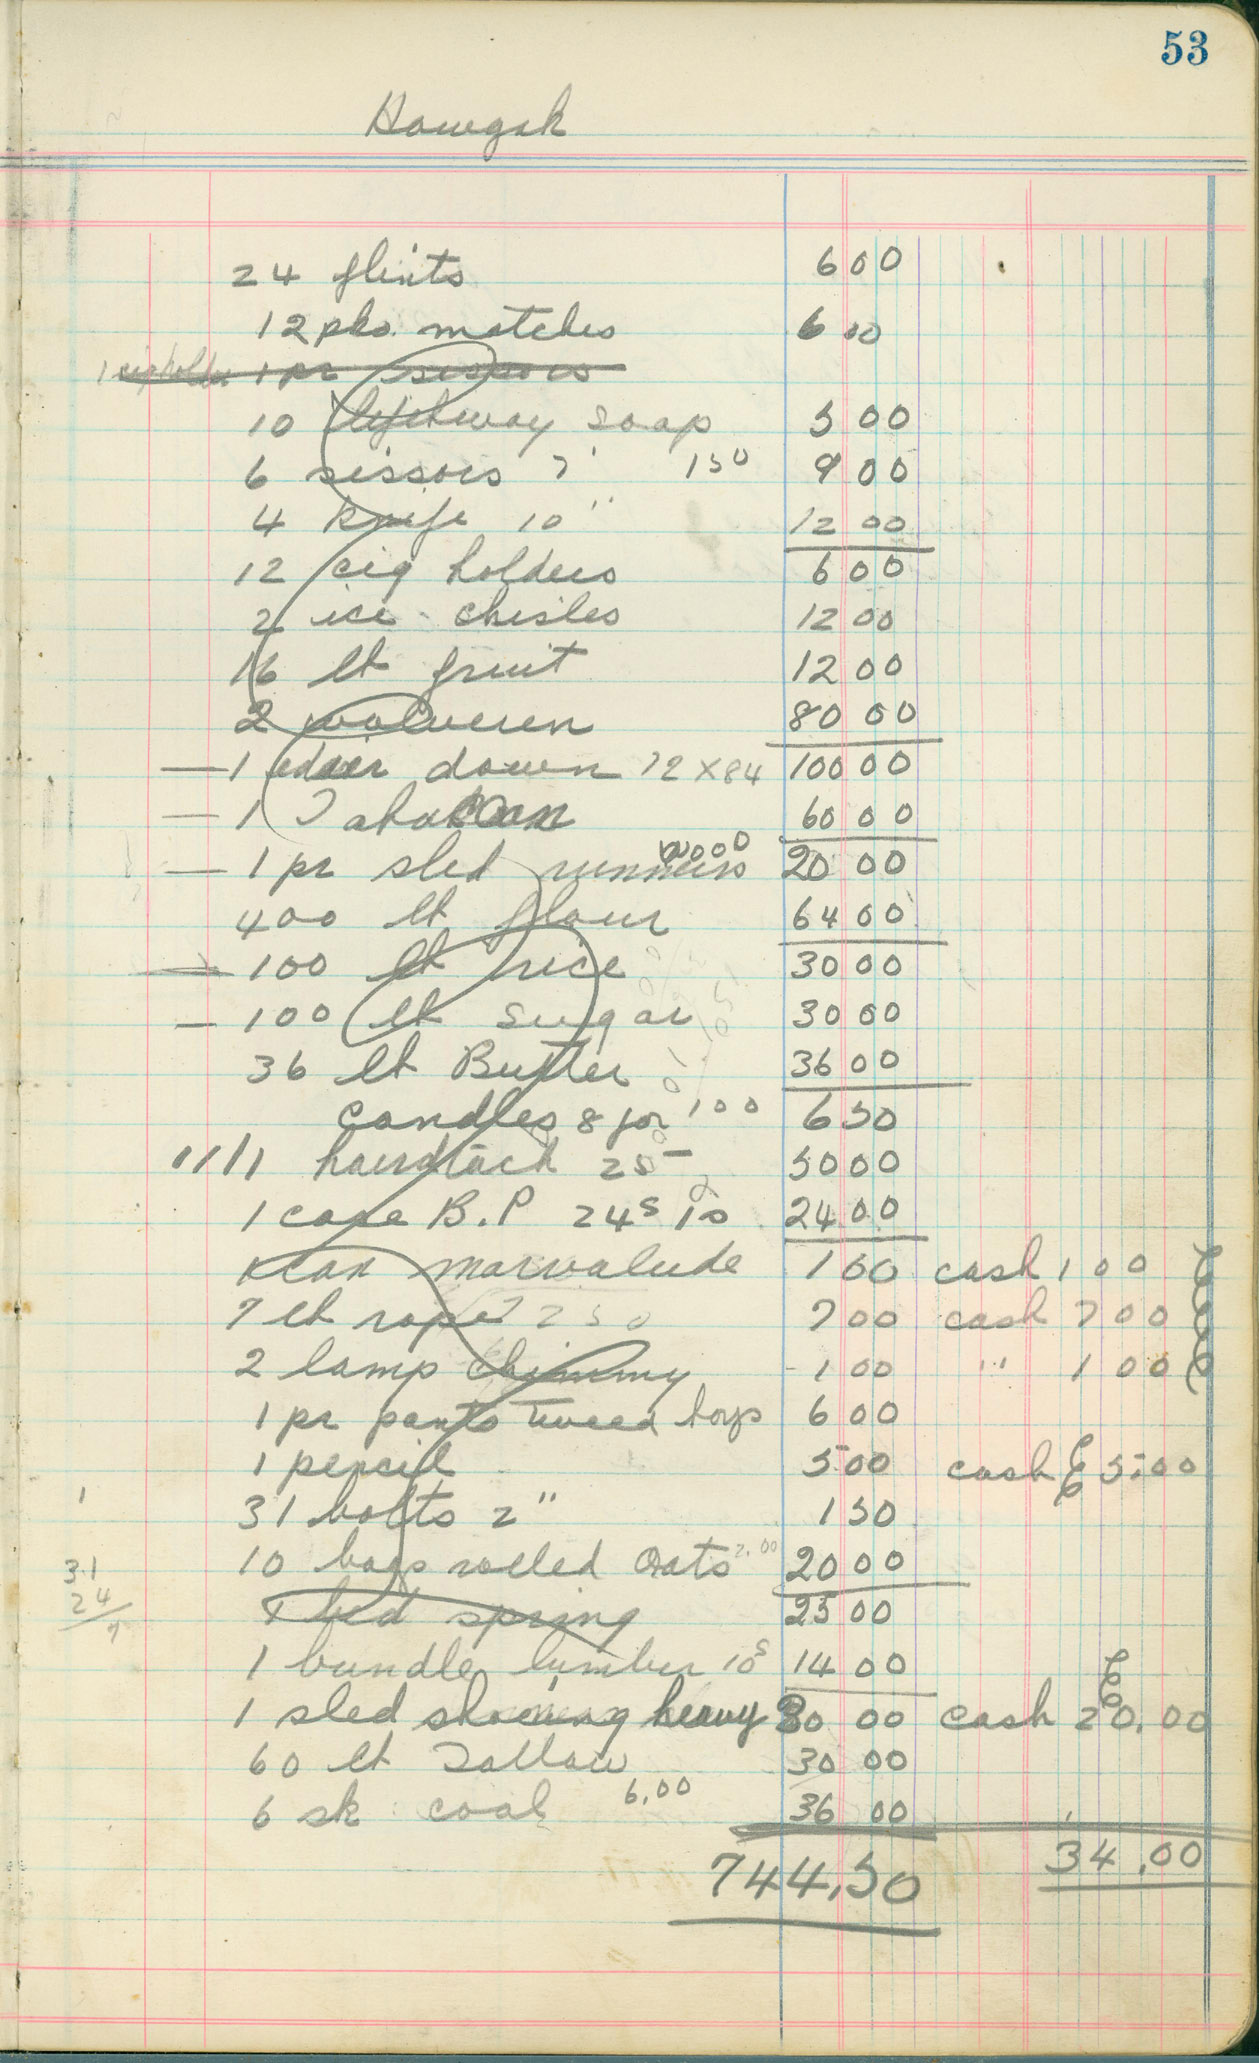 53
Howgak
24 flints 6 00
12 pks. matches 6 00
1 cig holder 1 pr sissors
10 lifebway soap 5 00
6 sissors 7" 150 9 00
4 knife 10" 12 00
12 cig holders 6 00
2 ice chisles 12 00
16 lt fruit 12 00
2 wolveren 80 00
— 1 eder down 72 X 84 100 00
— 1 60 00
— 1 pr sled runners 20 00
400 lt flour 64 00
— 100 lt rice 30 00
— 100 lt sugar 30 00
36 lt Butter 36 00
candles 8 for 100 6 50
11/11 hardtack 25 - 50 00
1 case B.P 24s 10 24 00
1 can marvalude 1 00 cash 1 00
7 lt rope 250 7 00 cash 7 00
2 lamp chimmy 1 00 " 1 00
1 pr pants Tweed boys 6 00
1 pencil 5 00 cash 5:00
1
31 bolts 2" 1 50
10 bags rolled Oats 2.00 20 00
31
24
7
1 bed spring 25 00
1 bundle lumber 10s 14 00
1 sled shoeing heavy 30 00 cash 20.00
60 lt Tallow 30 00
6 sk coal 6.00 36 00
744.50 34.00